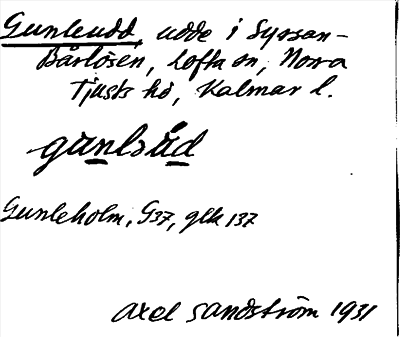 Gunleudd, udde i Syrsan-
Bårlösen, Lofta sn, Norra
Tjusts hd, Kalmar l.
gunlsåd
Gunleholm, G37, gek 137
Axel Sandström 1931